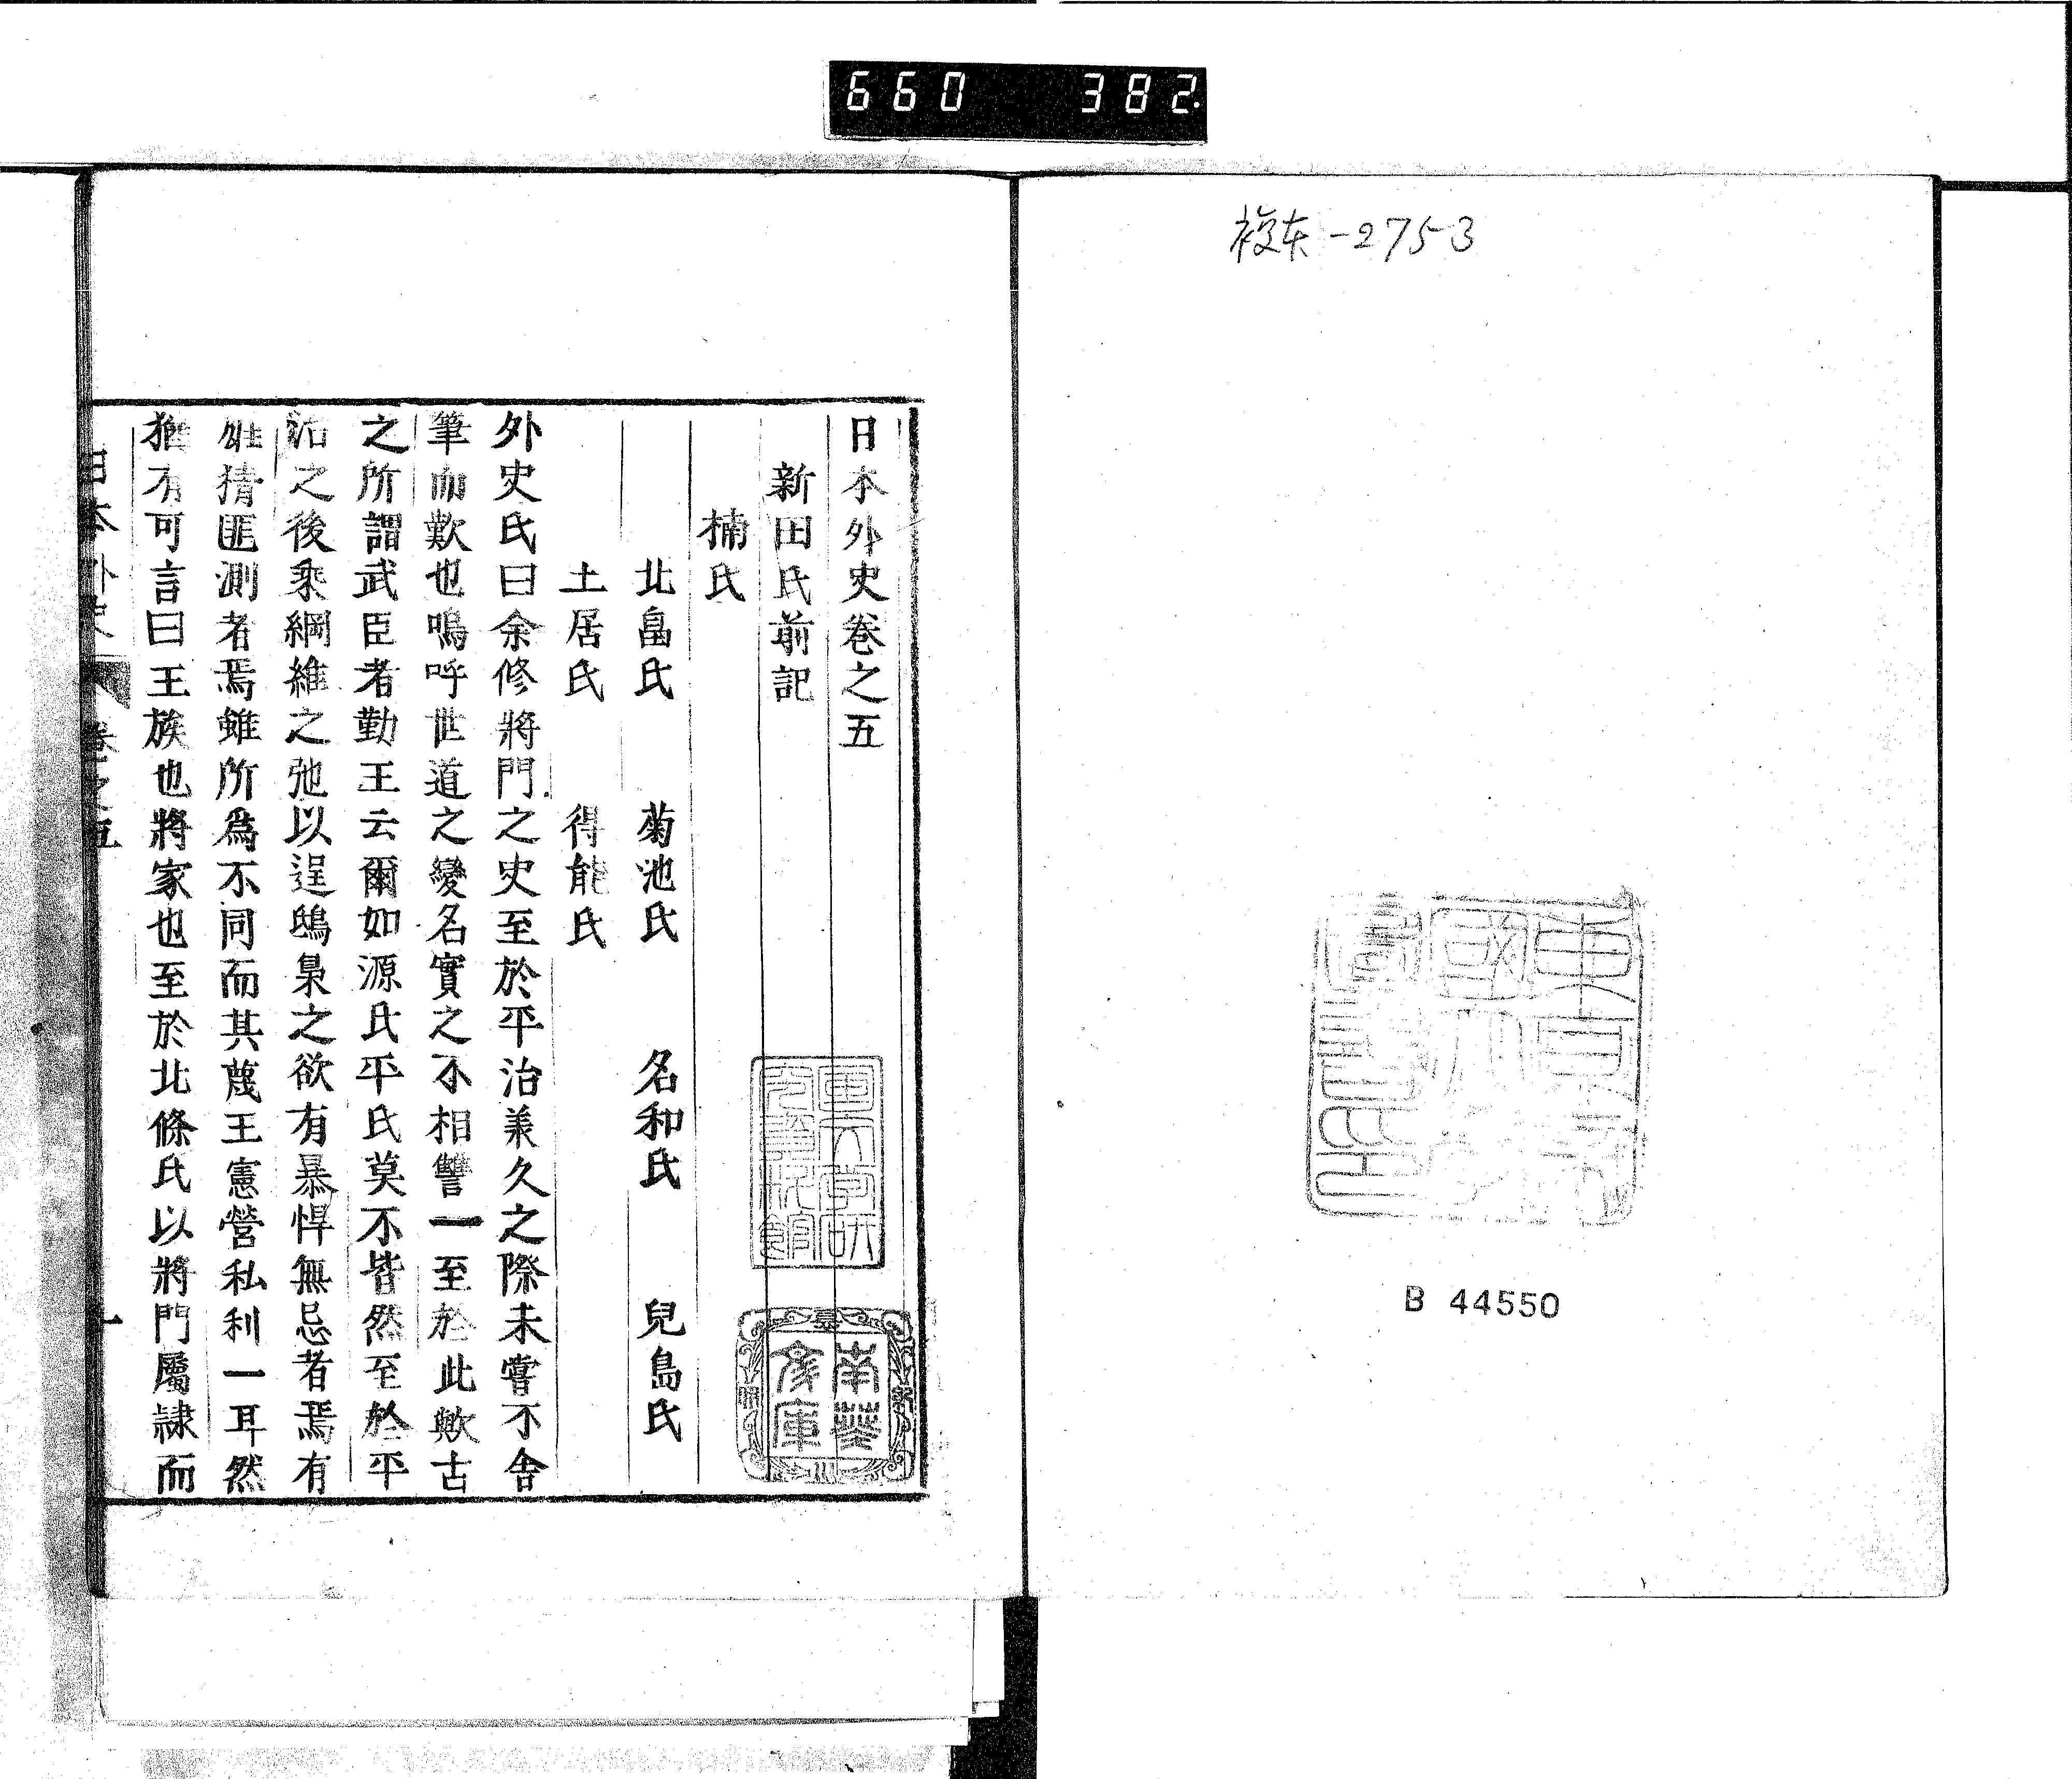 660 382
複本-2753
B 44550
日本外史卷之五
新田氏前記
楠氏
北畠氏 菊池氏 名和氏 兒島氏
土居氏 得能氏
外史氏曰余修將門之史至於平治羕久之際未嘗不舍
筆而歎也嗚呼世道之變名實之不相讐一至於此歟古
之所謂武臣者勤王云爾如源氏平氏莫不皆然至於平
治之後乘綱維之弛以逞鴟梟之欲有暴悍無忌者焉有
雄猜匪測者焉雖所爲不同而其蔑王憲營私利一耳然
猶有可言曰王族也將家也至於北條氏以將門屬隷而
日本外史 卷之五 一
南葵文庫